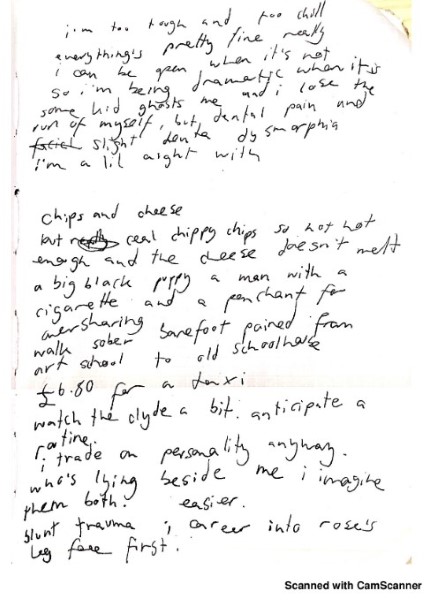 i'm too tough and too chill
everything's pretty fine really
i can be open when it's not
so i'm being dramatic when it is
some kid ghosts me and i lose the
run of myself, but dental pain and
facial slight dental dysmorphia
i'm a lil aight with
chips and cheese
but really ceal chippy chips so not hot
enough and the cheese doesn't melt
a big black puppy a man with a
cigarette and a penchant for
oversharing barefoot pained from
walk sober
art school to old schoolhouse
£6.80 for a taxi
watch the clyde a bit. anticipate a
routine.
i trade on personality anyway.
who's lying beside me i imagine
them both. easier.
blunt trauma i career into rose's
leg face first.
Scanned with CamScanner